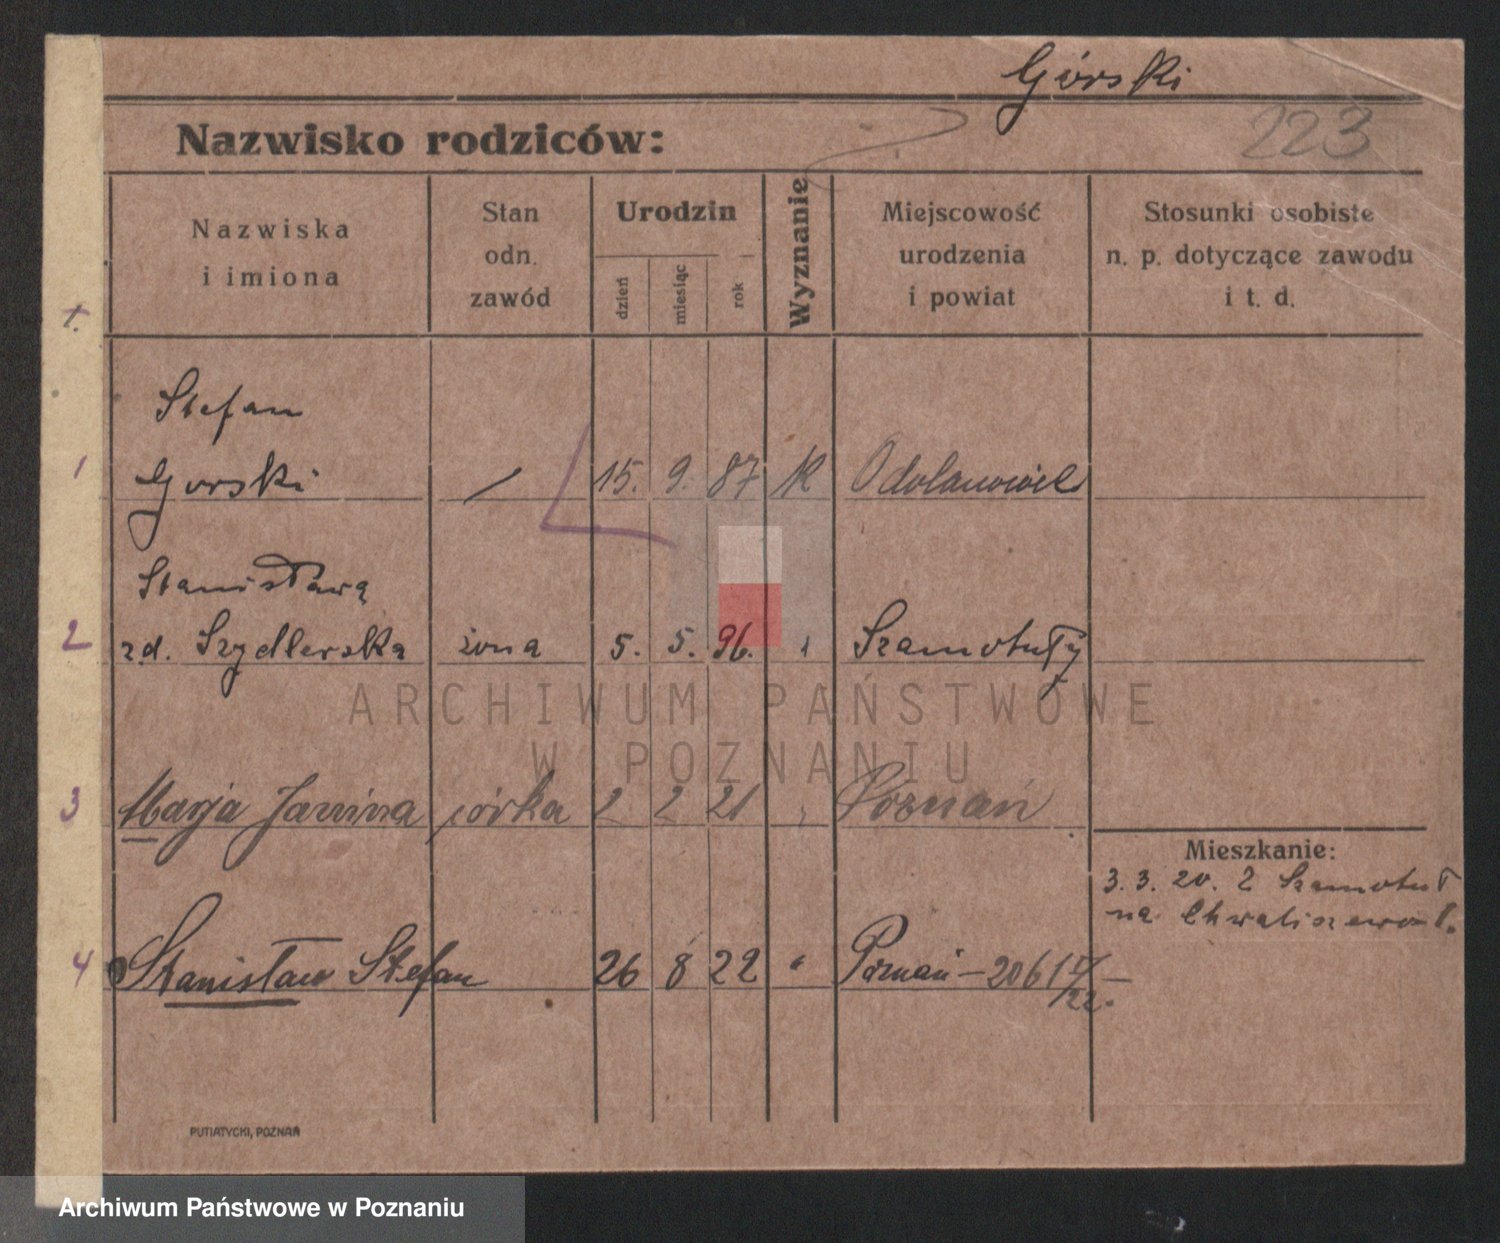 Górski
223
Nazwisko rodziców:
Nazwiska
i imiona
Stan
odn.
zawód
Urodzin
dzień
miesiąc
rok
Wyznanie
Miejscowość
urodzenia
i powiat
Stosunki osobiste
n. p. dotyczące zawodu
i t. d.
Stefan
1 Gorski 15. 9. 87 K
Stanisława
2 zd. Szydlerska żona 5. 5. 96. Szamotuły
3 Marja Janina córka 2 2 21 Poznań
Mieszkanie:
3. 3. 20. Z Szamotuł
na Chwaliszewo
4 Stanisław Stefan 26 8 22 " Poznań – 2061
22.
PUTIATYCKI, POZNAŃ
ARCHIWUM PAŃSTWOWE
W POZNANIU
Archiwum Państwowe w Poznaniu